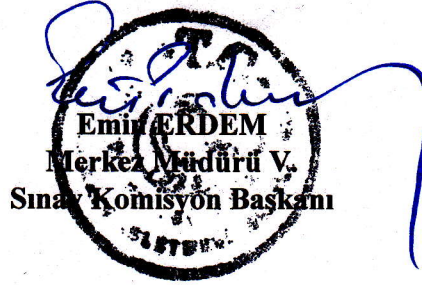 T.C.
Emin ERDEM
Merkez Müdürü V.
Sınav Komisyon Başkanı